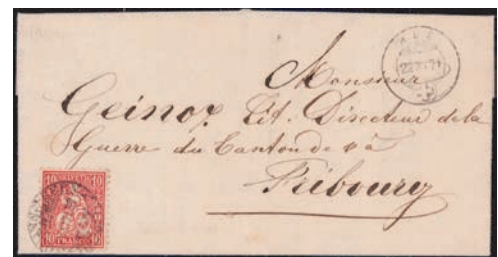 Monsieur
Geinoz Tit. Directeur de la
Guerre du Canton de & à
Fribourg
10 10
FRANCO
10 10